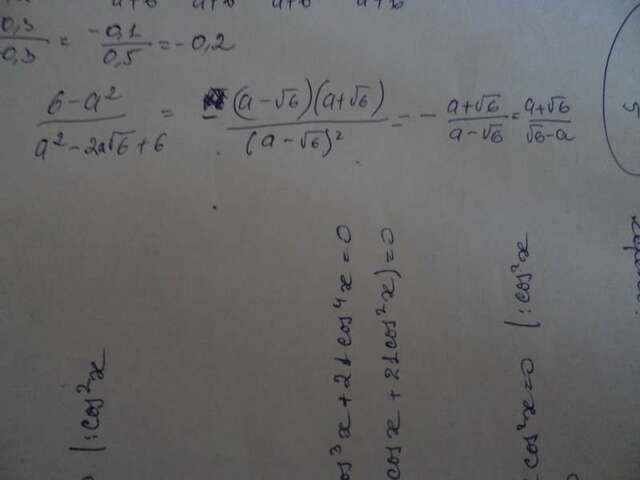 a+b a+b a+b a+b
0,3/0,3 = -0,1/0,5 = -0,2
6-a²/a²-2a√6+6 = -(a-√6)(a+√6)/(a-√6)² = - a+√6/a-√6 = a+√6/√6-a
5
|:cos²x
os³x+21cos⁴x=0
cosx+21cos²x)=0
cos²x=0 |:cos²x